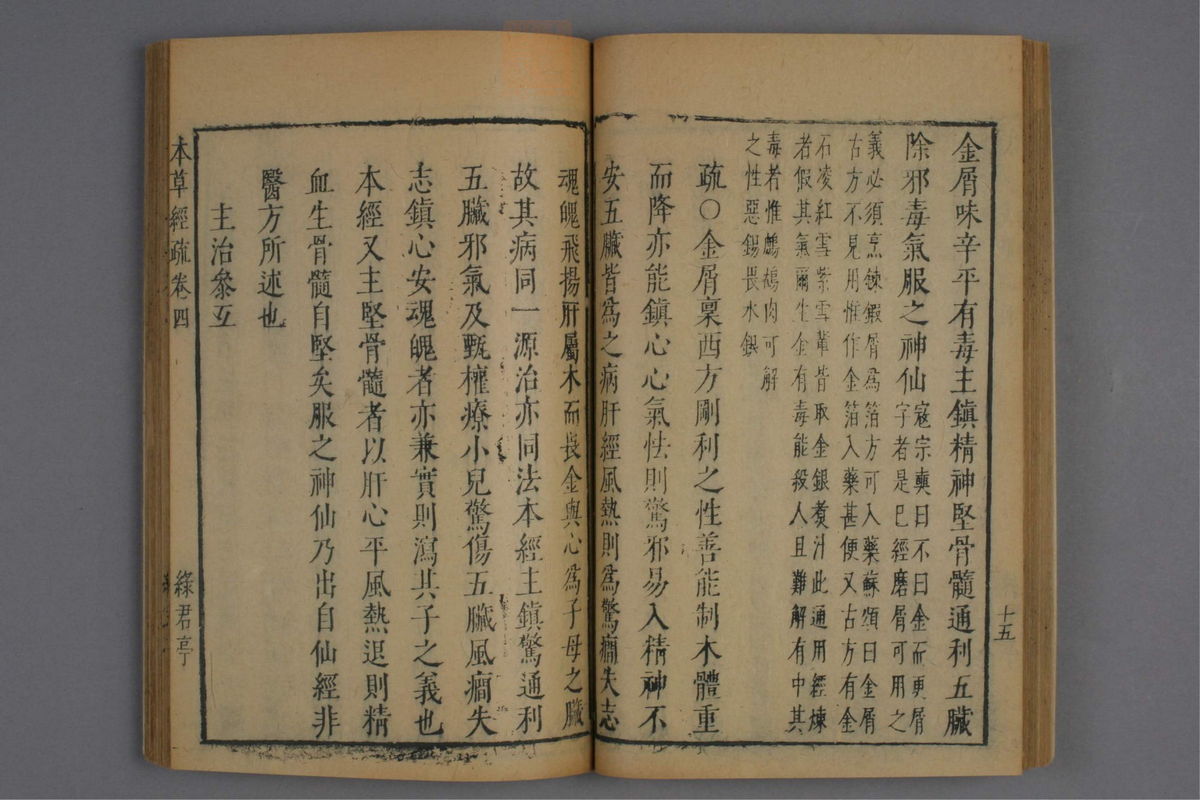 十五
金屑味辛平有毒主鎮精神堅骨髓通利五臟
除邪毒氣服之神仙
寇宗奭曰不曰金而更屑
字者是已經磨屑可用之
義必須烹鍊鍜屑為箔方可入藥蘇頌曰金屑
古方不見用惟作金箔入藥甚便又古方有金
石凌紅雪紫雪輩皆取金銀煑汁此通用經煉
者假其氣爾生金有毒能殺人且難解有中其
毒者惟鷓鴣肉可解
之性惡錫畏水銀
疏○金屑稟西方剛利之性善能制木體重
而降亦能鎮心心氣怯則驚邪易入精神不
安五臟皆為之病肝經風熱則為驚癎失志
魂魄飛揚肝屬木而畏金與心為子母之臟
故其病同一源治亦同法本經主鎮驚通利
五臟邪氣及甄權療小兒驚傷五臟風癎失
志鎮心安魂魄者亦兼實則瀉其子之義也
本經又主堅骨髓者以肝心平風熱退則精
血生骨髓自堅矣服之神仙乃出自仙經非
醫方所述也
主治參互
本草經疏卷四
綠君亭